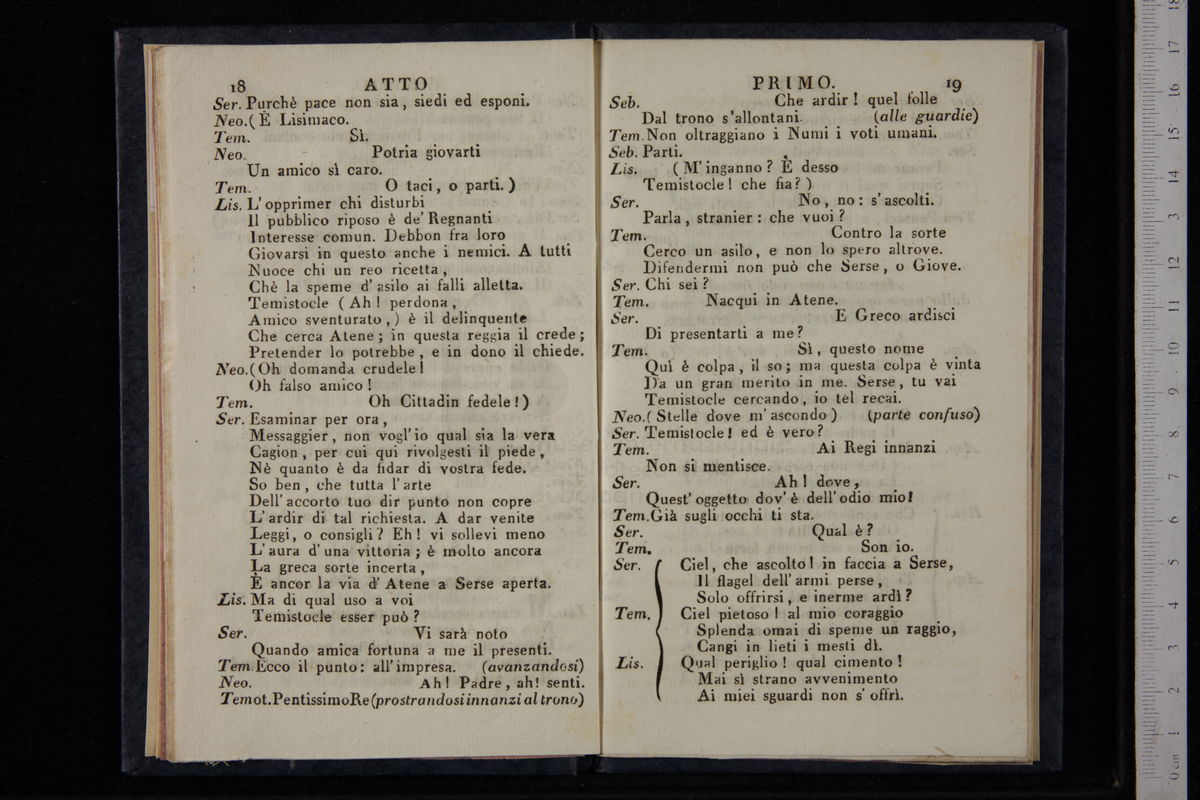 18 ATTO
Ser. Purchè pace non sia, siedi ed esponi.
Neo.( È Lisimaco.
Tem. Sì.
Neo. Potria giovarti
Un amico sì caro.
Tem. O taci, o parti. )
Lis. L'opprimer chi disturbi
Il pubblico riposo è de' Regnanti
Interesse comun. Debbon fra loro
Giovarsi in questo anche i nemici. A tutti
Nuoce chi un reo ricetta,
Chè la speme d'asilo ai falli alletta.
Temistocle ( Ah! perdona,
Amico sventurato,) è il delinquente
Che cerca Atene; in questa reggia il crede;
Pretender lo potrebbe, e in dono il chiede.
Neo.( Oh domanda crudele!
Oh falso amico!
Tem. Oh Cittadin fedele!)
Ser. Esaminar per ora,
Messaggier, non vogl'io qual sia la vera
Cagion, per cui qui rivolgesti il piede,
Nè quanto è da fidar di vostra fede.
So ben, che tutta l'arte
Dell'accorto tuo dir punto non copre
L'ardir di tal richiesta. A dar venite
Leggi, o consigli? Eh! vi sollevi meno
L'aura d'una vittoria; è molto ancora
La greca sorte incerta,
È ancor la via d'Atene a Serse aperta.
Lis. Ma di qual uso a voi
Temistocle esser può?
Ser. Vi sarà noto
Quando amica fortuna a me il presenti.
Tem. Ecco il punto: all'impresa. (avanzandosi)
Neo. Ah! Padre, ah! senti.
Temot.PentissimoRe(prostrandosi innanzi al trono)
PRIMO. 19
Seb. Che ardir! quel folle
Dal trono s'allontani. (alle guardie)
Tem. Non oltraggiano i Numi i voti umani.
Seb. Parti.
Lis. ( M'inganno? È desso
Temistocle! che fia? )
Ser. No, no: s'ascolti.
Parla, stranier: che vuoi?
Tem. Contro la sorte
Cerco un asilo, e non lo spero altrove.
Difendermi non può che Serse, o Giove.
Ser. Chi sei?
Tem. Nacqui in Atene.
Ser. E Greco ardisci
Di presentarti a me?
Tem. Sì, questo nome
Quì è colpa, il so; ma questa colpa è vinta
Da un gran merito in me. Serse, tu vai
Temistocle cercando, io tel recai.
Neo.( Stelle dove m'ascondo ) (parte confuso)
Ser. Temistocle! ed è vero?
Tem. Ai Regi innanzi
Non si mentisce.
Ser. Ah! dove,
Quest'oggetto dov'è dell'odio mio!
Tem. Già sugli occhi ti sta.
Ser. Qual è?
Tem. Son io.
Ser. Ciel, che ascolto! in faccia a Serse,
Il flagel dell'armi perse,
Solo offrirsi, e inerme ardì?
Tem. Ciel pietoso! al mio coraggio
Splenda omai di speme un raggio,
Cangi in lieti i mesti dì.
Lis. Qual periglio! qual cimento!
Mai sì strano avvenimento
Ai miei sguardi non s'offrì.
0 cm 1 2 3 4 5 6 7 8 9 10 11 12 13 14 15 16 17 18